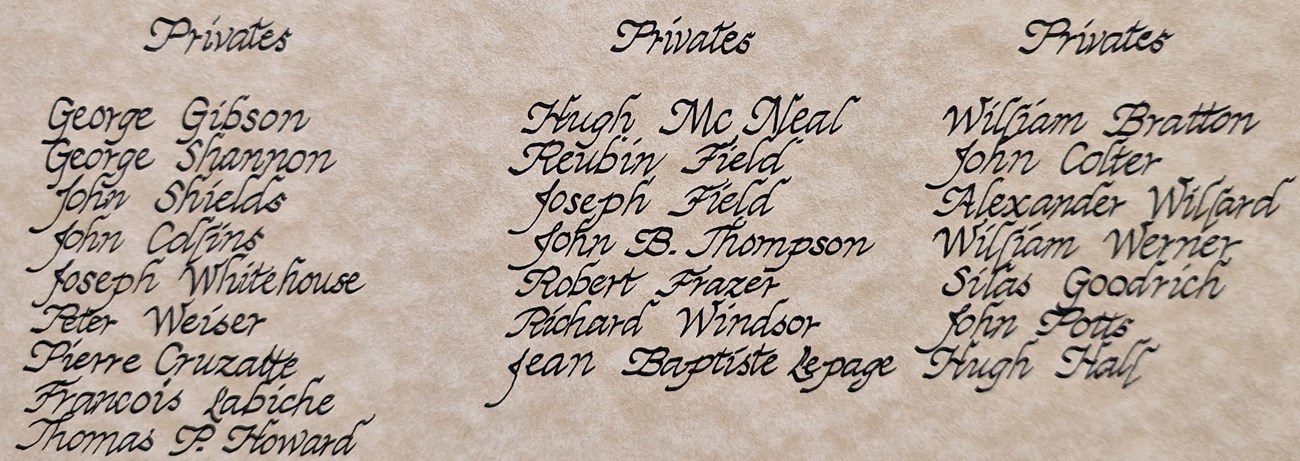 Privates
George Gibson
George Shannon
John Shields
John Collins
Joseph Whitehouse
Peter Weiser
Pierre Cruzatte
Francois Labiche
Thomas P. Howard
Privates
Hugh Mc Neal
Reubin Field
Joseph Field
John B. Thompson
Robert Frazer
Richard Windsor
Jean Baptiste Lepage
Privates
William Bratton
John Colter
Alexander Willard
William Werner
Silas Goodrich
John Potts
Hugh Hall